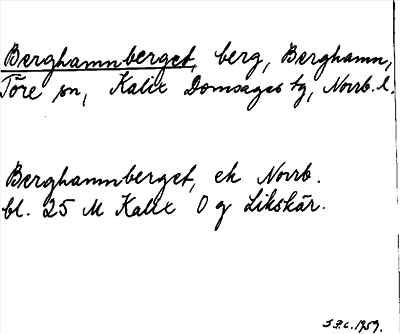 Berghamnberget, berg, Berghamn,
Töre sn, Kalix Domsagas tg, Norrb. l.
Berghamnberget, ek Norrb.
bl. 25 M Kalix O g Likskär.
1959.